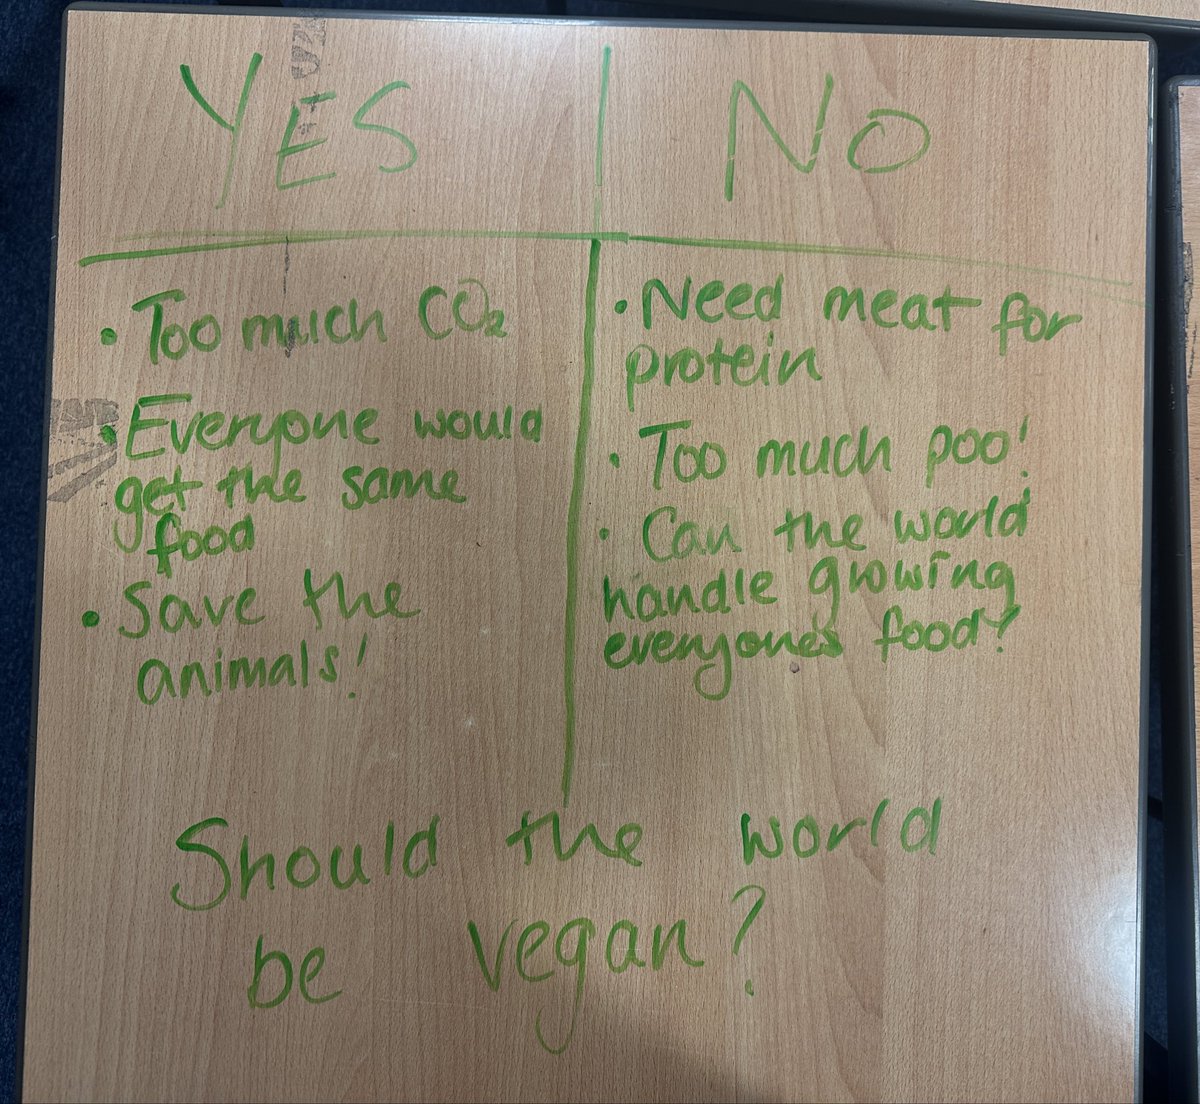 YES | NO
• Too much CO₂
• Everyone would
get the same
food
• Save the
animals!
• Need meat for
protein
• Too much poo!
• Can the world
handle growing
everyones food?
Should the world
be vegan?